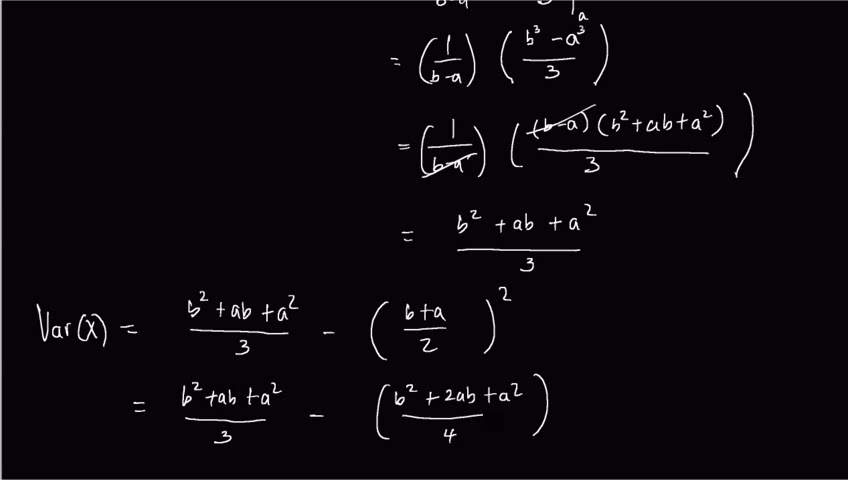 a
= (1/(b-a)) ((b³ - a³)/3)
= (1/(b-a)) ((b-a)(b² + ab + a²)/3)
= (b² + ab + a²)/3
Var(X) = (b² + ab + a²)/3 - ((b+a)/2)²
= (b² + ab + a²)/3 - ((b² + 2ab + a²)/4)